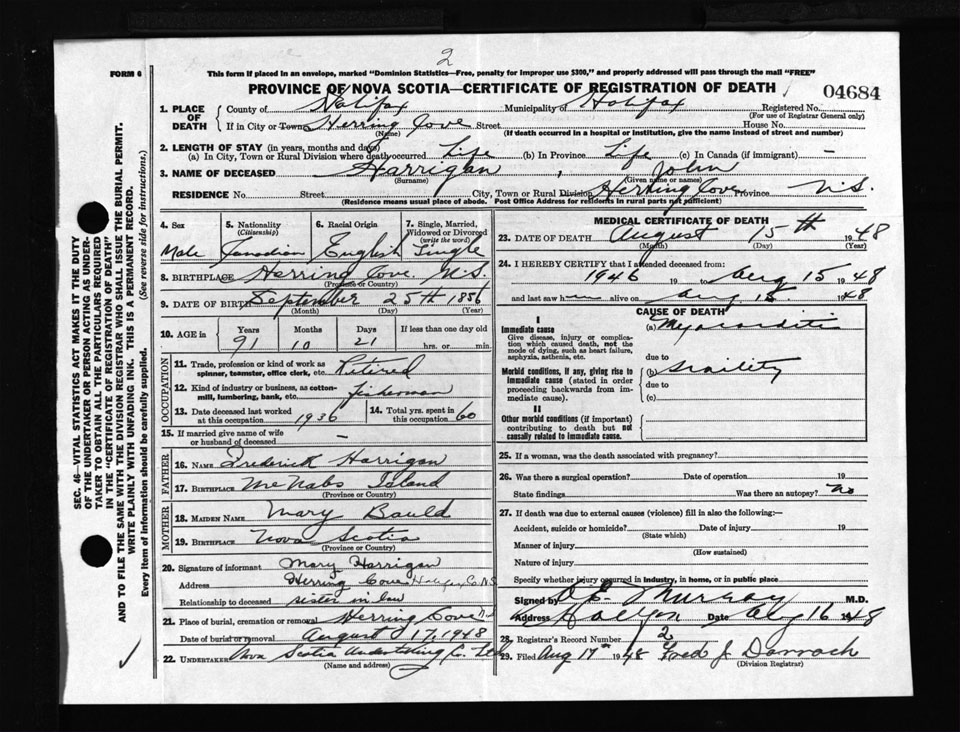 2
FORM 6
This form if placed in an envelope, marked "Dominion Statistics—Free, penalty for improper use $300," and properly addressed will pass through the mail "FREE"
PROVINCE OF NOVA SCOTIA—CERTIFICATE OF REGISTRATION OF DEATH
04684
1. PLACE OF DEATH County of Halifax Municipality of Halifax Registered No.
(For use of Registrar General only)
If in City or Town Herring Cove Street House No.
(Name) (If death occurred in a hospital or institution, give the name instead of street and number)
2. LENGTH OF STAY (in years, months and days)
(a) In City, Town or Rural Division where death occurred Life (b) In Province Life (c) In Canada (if immigrant) —
3. NAME OF DECEASED Harrigan , John
(Surname) (Given name or names)
RESIDENCE No. Street City, Town or Rural Division Herring Cove Province N.S.
(Residence means usual place of abode. Post Office Address for residents in rural parts not sufficient)
4. Sex Male
5. Nationality (Citizenship) Canadian
6. Racial Origin English
7. Single, Married, Widowed or Divorced (write the word) Single
8. BIRTHPLACE Herring Cove. N.S.
(Province or Country)
9. DATE OF BIRTH September 25th 1856
(Month) (Day) (Year)
10. AGE in Years 91 Months 10 Days 21 If less than one day old hrs. or min.
OCCUPATION
11. Trade, profession or kind of work as spinner, teamster, office clerk, etc. Retired
12. Kind of industry or business, as cotton-mill, lumbering, bank, etc. Fisherman
13. Date deceased last worked at this occupation 1936
14. Total yrs. spent in this occupation 60
15. If married give name of wife or husband of deceased —
FATHER
16. NAME Frederick Harrigan
17. BIRTHPLACE McNabs Island
(Province or Country)
MOTHER
18. MAIDEN NAME Mary Bauld
19. BIRTHPLACE Nova Scotia
(Province or Country)
20. Signature of informant Mary Harrigan
Address Herring Cove Halifax Co. N.S.
Relationship to deceased sister in law
21. Place of burial, cremation or removal Herring Cove N.S.
Date of burial or removal August 17, 1948
22. UNDERTAKER Nova Scotia Undertaking Co. Ltd
(Name and address)
MEDICAL CERTIFICATE OF DEATH
23. DATE OF DEATH August 15th 1948
(Month) (Day) (Year)
24. I HEREBY CERTIFY that I attended deceased from:
1946 19 to Aug 15 1948
and last saw him alive on Aug 15 1948
CAUSE OF DEATH
I
Immediate cause
Give disease, injury or complication which caused death, not the mode of dying, such as heart failure, asphyxia, asthenia, etc.
(a) Myocarditis
due to
Morbid conditions, if any, giving rise to immediate cause (stated in order proceeding backwards from immediate cause).
(b) Senility
due to
(c)
II
Other morbid conditions (if important) contributing to death but not causally related to immediate cause.
25. If a woman, was the death associated with pregnancy?
26. Was there a surgical operation? Date of operation 19
State findings Was there an autopsy? No
27. If death was due to external causes (violence) fill in also the following:—
Accident, suicide or homicide? Date of injury 19
(State which)
Manner of injury
(How sustained)
Nature of injury
Specify whether injury occurred in industry, in home, or in public place
Signed by Murray M.D.
Address Halifax Date Aug 16 1948
28. Registrar's Record Number 2
29. Filed Aug 17th 1948 Fred J Darrach
(Division Registrar)
SEC. 46—VITAL STATISTICS ACT MAKES IT THE DUTY
OF THE UNDERTAKER OR PERSON ACTING AS UNDER-
TAKER TO OBTAIN ALL THE PARTICULARS REQUIRED
IN THE "CERTIFICATE OF REGISTRATION OF DEATH"
AND TO FILE THE SAME WITH THE DIVISION REGISTRAR WHO SHALL ISSUE THE BURIAL PERMIT.
WRITE PLAINLY WITH UNFADING INK. THIS IS A PERMANENT RECORD.
Every item of information should be carefully supplied. (See reverse side for instructions.)